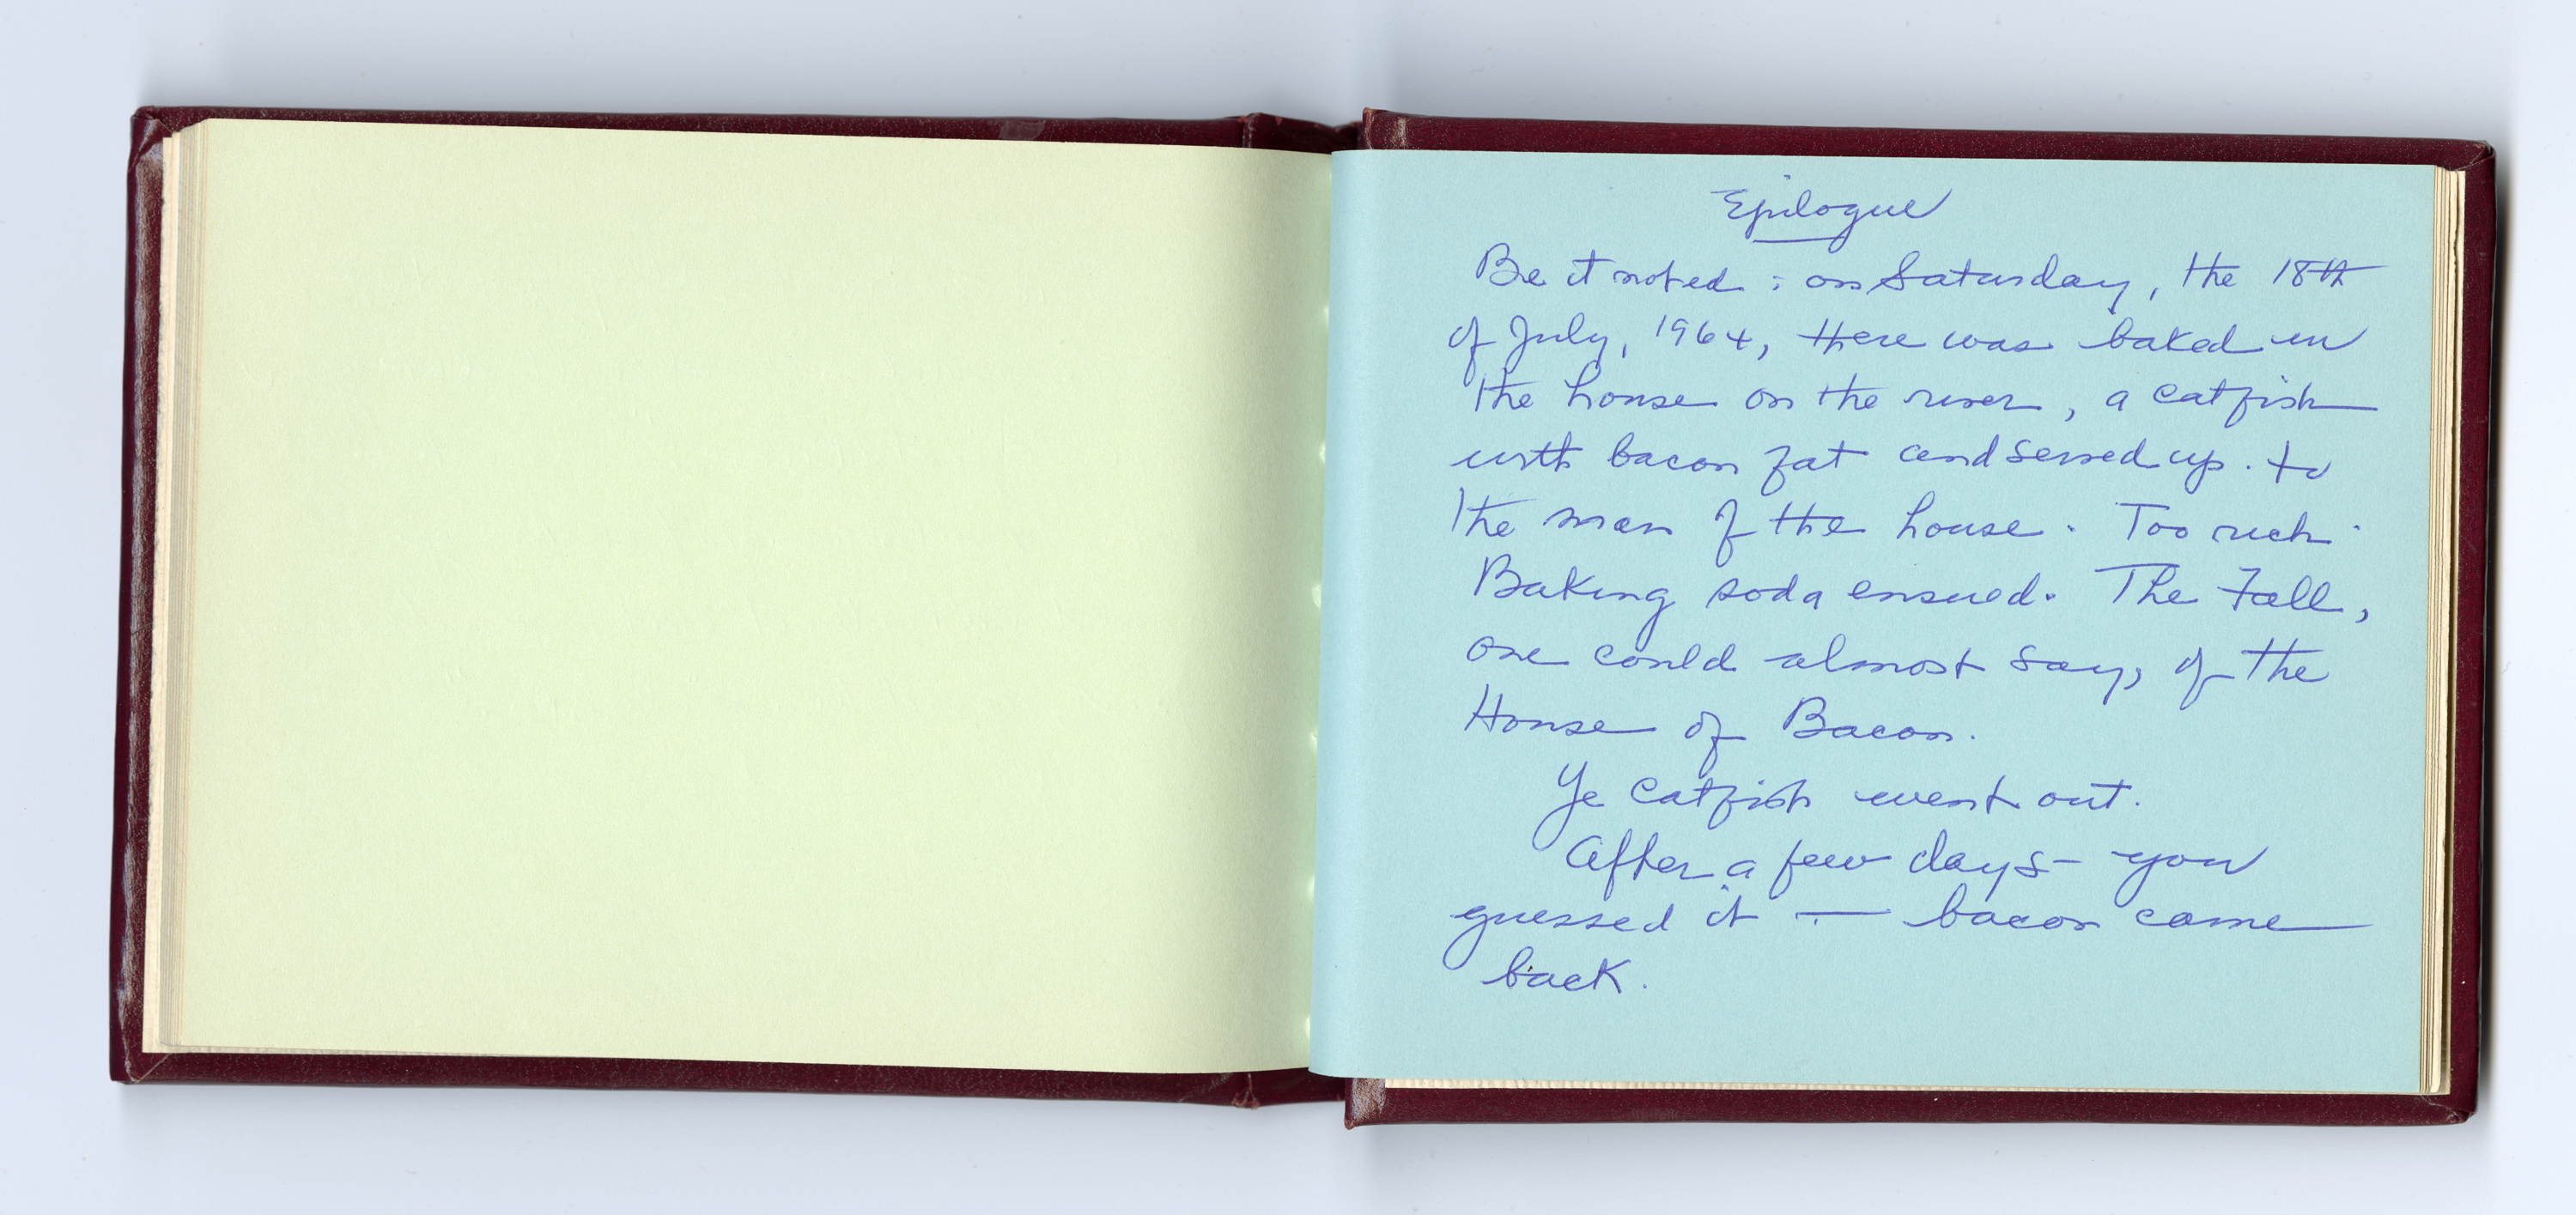 Epilogue
Be it noted: on Saturday, the 18th
of July, 1964, there was baked in
the house on the river, a catfish
with bacon fat and served up. to
the man of the house. Too rich.
Baking soda ensued. The Fall,
one could almost say, of the
House of Bacon.
Ye catfish went out.
After a few days - you
guessed it — bacon came
back.